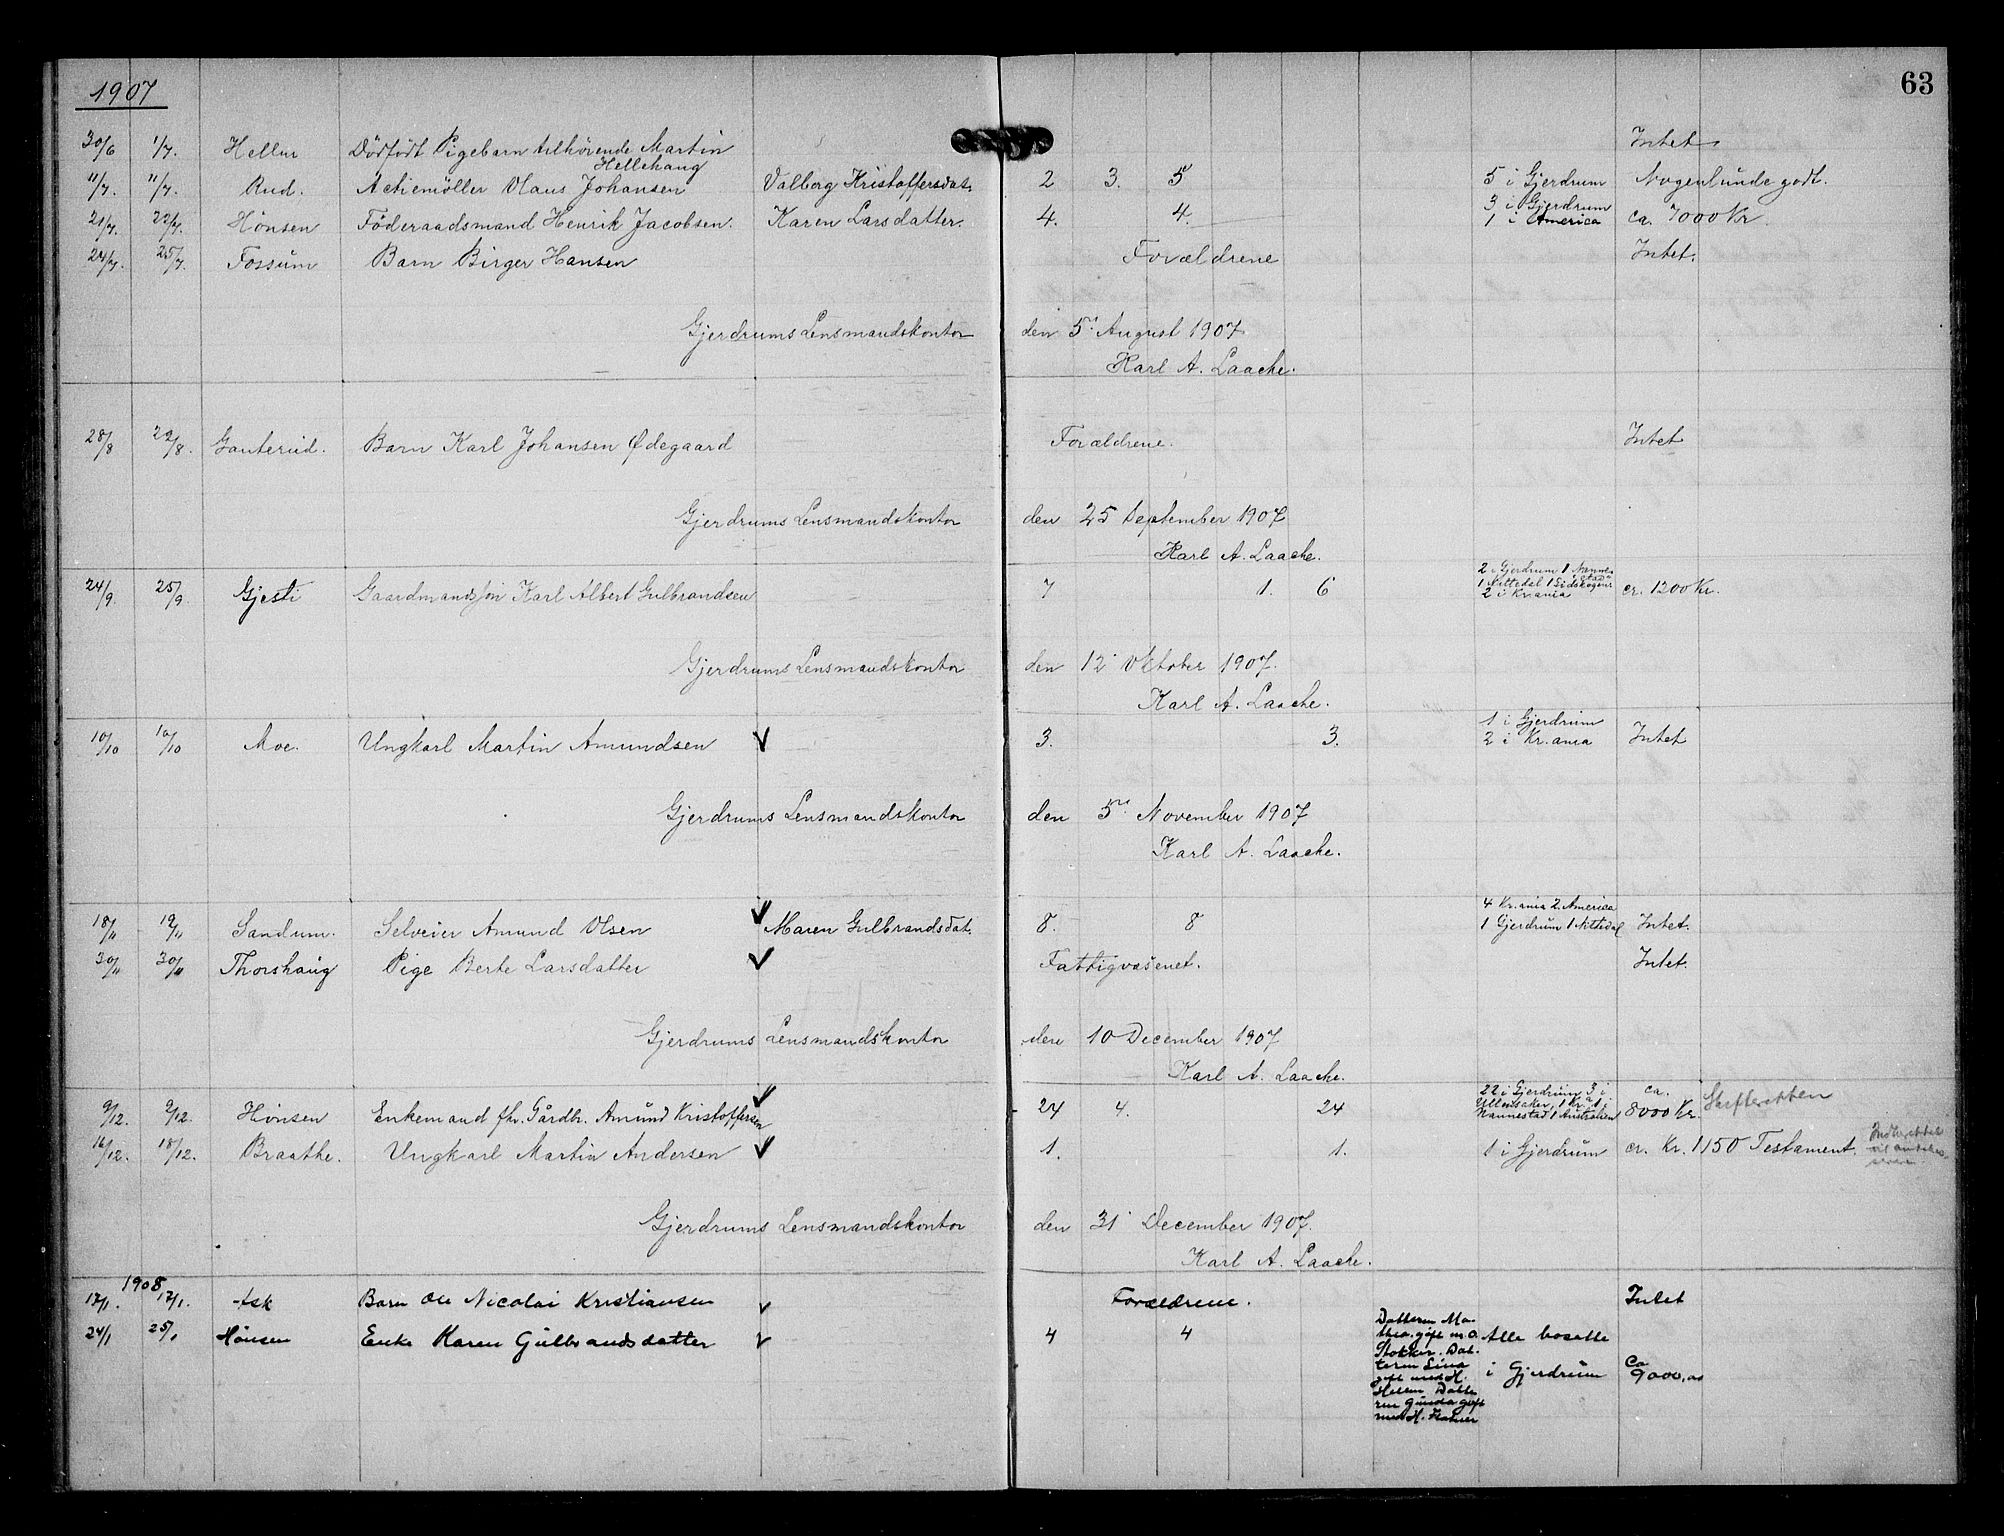 63
1907
30/6 1/7. Hellen Dödfödt Pigebarn tilhörende Martin Hellehaug Intet.
11/7. 11/7. Rud. Olaus Johansen Valborg Kristoffersdat. 2 3. 5 5 i Gjerdrum Nogenlunde godt.
21/7 22/7. Hönsen Föderaadsmand Henrik Jacobsen. Karen Larsdatter. 4. 4. 3 i Gjerdrum 1 i America ca. 7000 Kr.
24/7. 25/7 Fossum Barn Birger Hansen Forældrene Intet.
Gjerdrums Lensmandskontor den 5' August 1907
Karl A. Laache.
28/8 29/8. Ganterud. Barn Karl Johansen Ødegaard Forældrene. Intet
Gjerdrums Lensmandskontor den 25 September 1907
Karl A. Laache.
24/9. 25/9 Gjesti Gaardmandssön Karl Albert Gulbrandsen 7 1. 6 2 i Gjerdrum 1 Nannestad 1 Nittedal 1 2 i Kr.ania cr. 1200 Kr.
Gjerdrums Lensmandskontor den 12' Oktober 1907.
Karl A. Laache.
10/10 10/10 Moe. Ungkarl Martin Amundsen 3. 3. 1 i Gjerdrum 2 i Kr.ania Intet
Gjerdrums Lensmandskontor den 5' November 1907
Karl A. Laache.
18/11 19/11 Sandum. Selveier Amund Olsen Maren Gulbrandsdat. 8. 8 4 Kr.ania 2 America 1 Gjerdrum 1 Nittedal Intet.
30/11 30/11 Thorshaug Pige Berte Larsdatter Fattigvæsenet. Intet.
Gjerdrums Lensmandskontor den 10 December 1907
Karl A. Laache.
9/12. 9/12. Hönsen Enkemand fhr. Gårdbr. Amund Kristoffersen 24 4. 24 22 i Gjerdrum 3 i Ullensaker, 1 Kr.a 1 i Nannestad 1 Australien ca. 8000 Kr. Skifteretten
16/12. 18/12. Braathe. Ungkarl Martin Andersen 1. 1. 1 i Gjerdrum cr. Kr. 1150 Testament.
Gjerdrums Lensmandskontor den 31' December 1907.
Karl A. Laache.
1908
17/1. 17/1. Ask Barn Ole Nicolai Kristiansen Forældrene. Intet
24/1 25/1 Hönsen Enke Karen Gulbrandsdatter 4 4 Datteren Mathea gift m. O. Stokker. Datteren Lina gift med H. Hellen Datteren Gunda gift med H. Alle bosatte i Gjerdrum Ca 9000,00